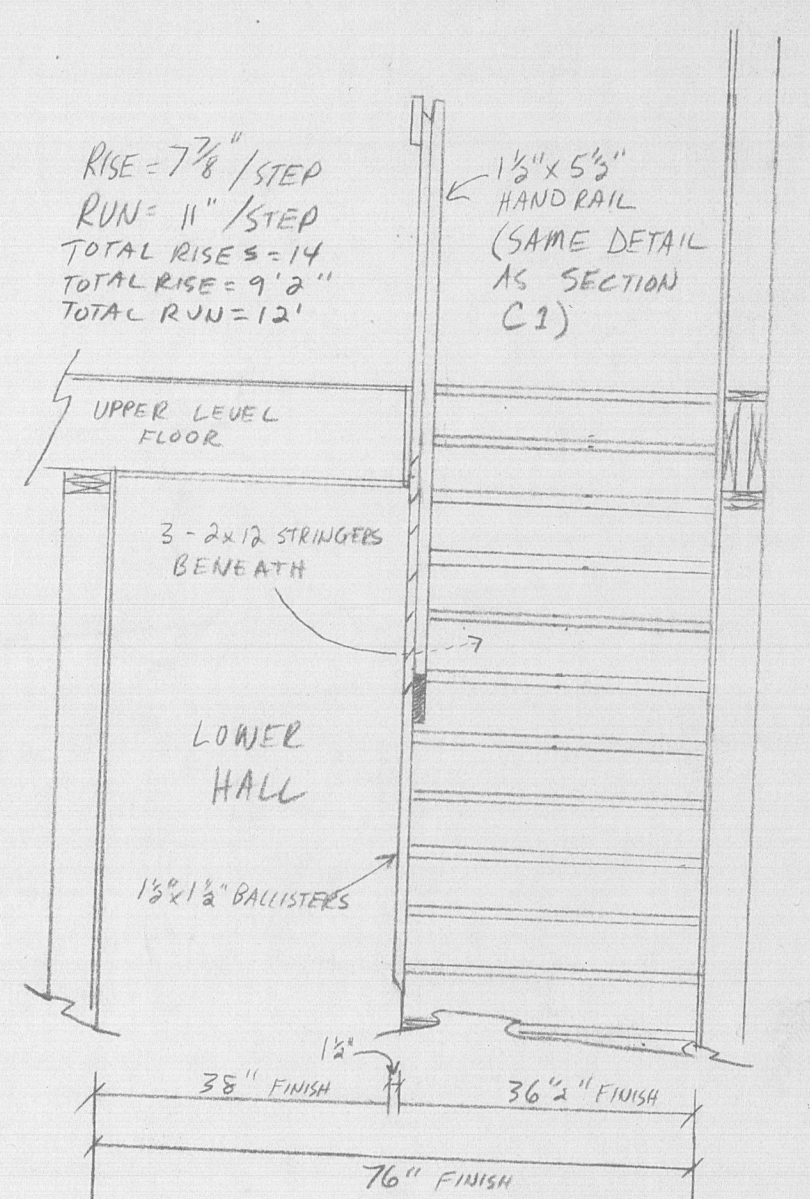 RISE = 7 7/8" /STEP
RUN = 11" /STEP
TOTAL RISES = 14
TOTAL RISE = 9'2"
TOTAL RUN = 12'
1 1/2" x 5 1/2"
HANDRAIL
(SAME DETAIL
AS SECTION
C1)
UPPER LEVEL
FLOOR
3 - 2x12 STRINGERS
BENEATH
LOWER
HALL
1 1/2" x 1 1/2" BALLISTERS
1 1/2"
38" FINISH
36 1/2" FINISH
76" FINISH